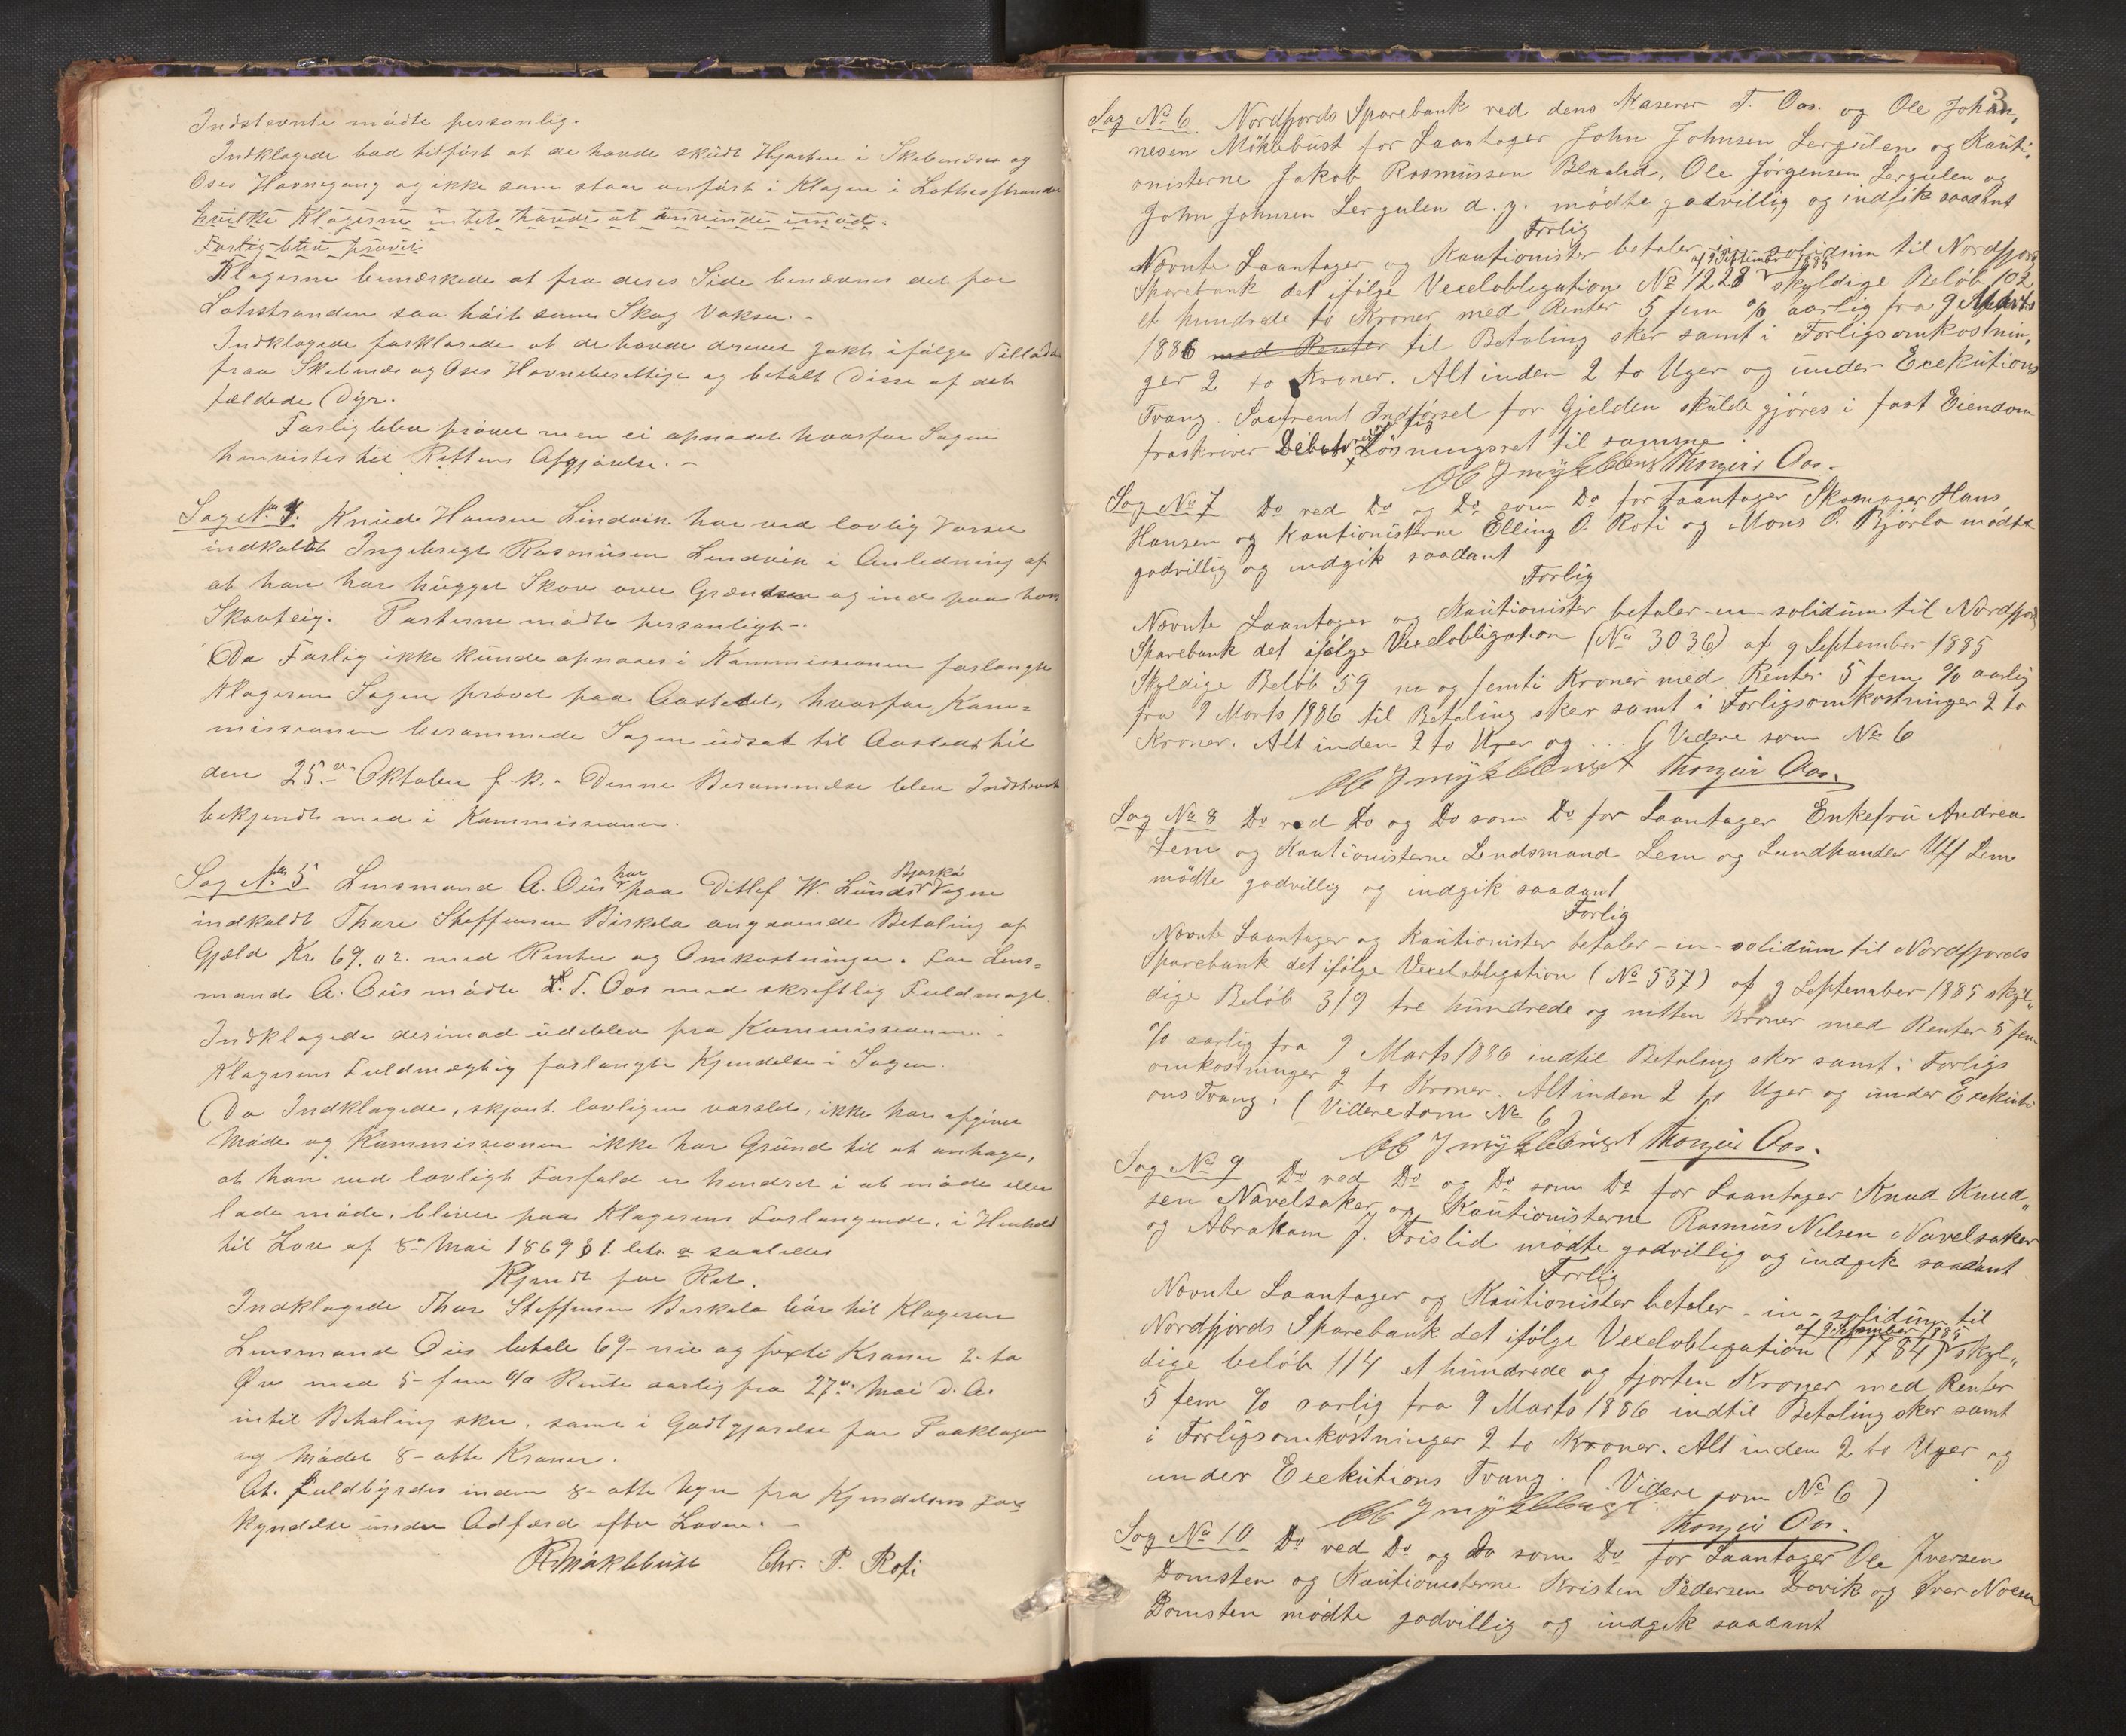 Indstevnte mødte personlig.
Indklagede bad tilført at de havde skudt Hjorten i Skebenæsen og
Oses Havnegang og ikke som staar anført i Klagen i Lothesstranden
hvilke Klagerne intet havde at anvende imod.
Forlig blev prøvet
Klagerne bemærkede at fra deres Side benævnes det for
Lotsstranden saa høit som Skog vokser. -
Indklagede forklarede at de havde drevet Jakt ifølge Tilladelse
fraa Skebenæs og Oses Havneberettige og betalt Disse af det
fældede Dyr.
Forlig blev prøvet men ei opnaaet hvorfor Sagen
henvistes til Rettens Afgjørelse. -
Sag No 4. Knud Hansen Lindvik har ved lovlig Varsel
indkaldt Ingebregt Rasmusen Lindvik i Anledning af
at han har hugget Skov over Grændsen og ind paa hans
Skovteig. Parterne mødte personligt -.
Da Forlig ikke kunde opnaaes i Kommissionen forlangte
Klageren Sagen prøvet paa Aastedet, hvorfor Kom-
missionen berammede Sagen udsat til Aastedet til
den 25de Oktober f. k. - Denne Berammelse blev Indstevnte
bekjendt med i Kommissionen.
Sag No 5 Lensmand A. Øus har paa Ditlef W. Lunds Bjorkå Vegne
indkaldt Thore Steffensen Birkelo angaaende Betaling af
Gjæld Kr 69.02. med Renter og Omkostninger. For Lens-
mand A. Øus mødte T. Oos med skriftlig Fuldmagt.
Indklagede derimod udeblev fra Kommissionen. -
Klagerens Fuldmægtig forlangte Kjendelse i Sagen.
Da Indklagede, skjønt lovligen varslet, ikke har afgivet
Møde og Kommissionen ikke har Grund til at antage,
at han ved lovligt Forfald er hindret i at møde eller
lade møde, bliver paa Klagerens Forlangende, i Henhold
til Lov af 8de Mai 1869 § 1. litr. a saaledes
Kjendt for Ret.
Indklagede Thor Steffensen Birkelo bør til Klageren
Lensmand Øus betale 69- nie og sexti Kroner 2- to
Øre med 5- fem o/o Rente aarlig fra 27de Mai d. A.
intil Betaling sker, samt i Godtgjørelse for Paaklagen
og Mødet 8- otte Kroner.
At fuldbyrdes inden 8- otte Uger fra Kjendelsens For-
kyndelse under Adfærd efter Loven. -
R Møklebust Chr. P. Roti
3
Sag No 6 Nordfjords Sparebank ved dens Kaserer T. Oos. og Ole Johan,
nesen Möklebust for Laantager John Johnsen Lergulen og Kauti,
onisterne Jakob Rasmussen Blaalid, Ole Jørgensen Lergulen og
John Johnsen Lergulen d. y. mødte godvillig og indgik saadant
Forlig
Nævnte Laantager og Kautionister betaler in solidum til Nordfjords
Sparebank det ifølge Vexelobligation No 1228 af 9 September 1885 skyldige Beløb 102
et hundrede to Kroner med Renter 5 fem o/o aarlig fra 9 Marts
1886 med Renter til Betaling sker samt i Forligsomkostnin,
ger 2 to Kroner. Alt inden 2 to Uger og under Exekutions
Tvang. Saafremt Indførsel for Gjelden skulde gjøres i fast Eiendom
fraskriver Debitor sig Løsningsret til samme.
Ole J Myklebust Thorgeir Oos.
Sag No 7 Do ved Do og Do som Do for Laantager Skomager Hans
Hansen og Kautionisterne Elling O. Roti og Mons O. Bjørlo mødte
godvillig og indgik saadant
Forlig
Nævnte Laantager og Kautionister betaler -in- solidum til Nordfjords
Sparebank det ifølge Vexelobligation (No 3036) af 9 September 1885
Skyldige Beløb 59 ni og femti Kroner med Renter 5 fem o/o aarlig
fra 9 Marts 1886 til Betaling sker samt i Forligsomkostninger 2 to
Kroner. Alt inden 2 to Uger og ... (Videre som No 6
Ole J Myklebust Thorgeir Oos.
Sag No 8 Do ved Do og Do som Do for Laantager Enkefru Andrea
Lem og Kautionisterne Lendsmand Lem og Landhandler Ulf Lem
mødte godvillig og indgik saadant
Forlig
Nævnte Laantager og Kautionister betaler -in- solidum til Nordfjords
Sparebank det ifølge Vexelobligation (No 537) af 9 September 1885 skyl"
dige Beløb 319 tre hundrede og nitten Kroner med Renter 5 fem
o/o aarlig fra 9 Marts 1886 indtil Betaling sker samt i Forligs
omkostninger 2 to Kroner. Alt inden 2 to Uger og under Exekuti
ons Tvang. (Videre som No 6)
Ole J Myklebust Thorgeir Oos.
Sag No 9 Do ved Do og Do som Do for Laantager Knud Knud"
sen Navelsaker og Kautionisterne Rasmus Nilsen Navelsaker
og Abraham J. Frislid mødte godvillig og indgik saadant
Forlig
Nævnte Laantager og Kautionister betaler -in- solidum til
Nordfjords Sparebank det ifølge Vexelobligation (1784) af 9 September 1885 skyl"
dige beløb 114 et hundrede og fjorten Kroner med Renter
5 fem o/o aarlig fra 9 Marts 1886 indtil Betaling sker samt
i Forligsomkostninger 2 to Kroner. Alt inden 2 to Uger og
under Exekutions Tvang. (Videre som No 6)
Ole J Myklebust Thorgeir Oos.
Sag No 10 Do ved Do og Do som Do for Laantager Ole Iversen
Domsten og Kautionisterne Kristen Pedersen Lovik og Iver
Domsten mødte godvillig og indgik saadant